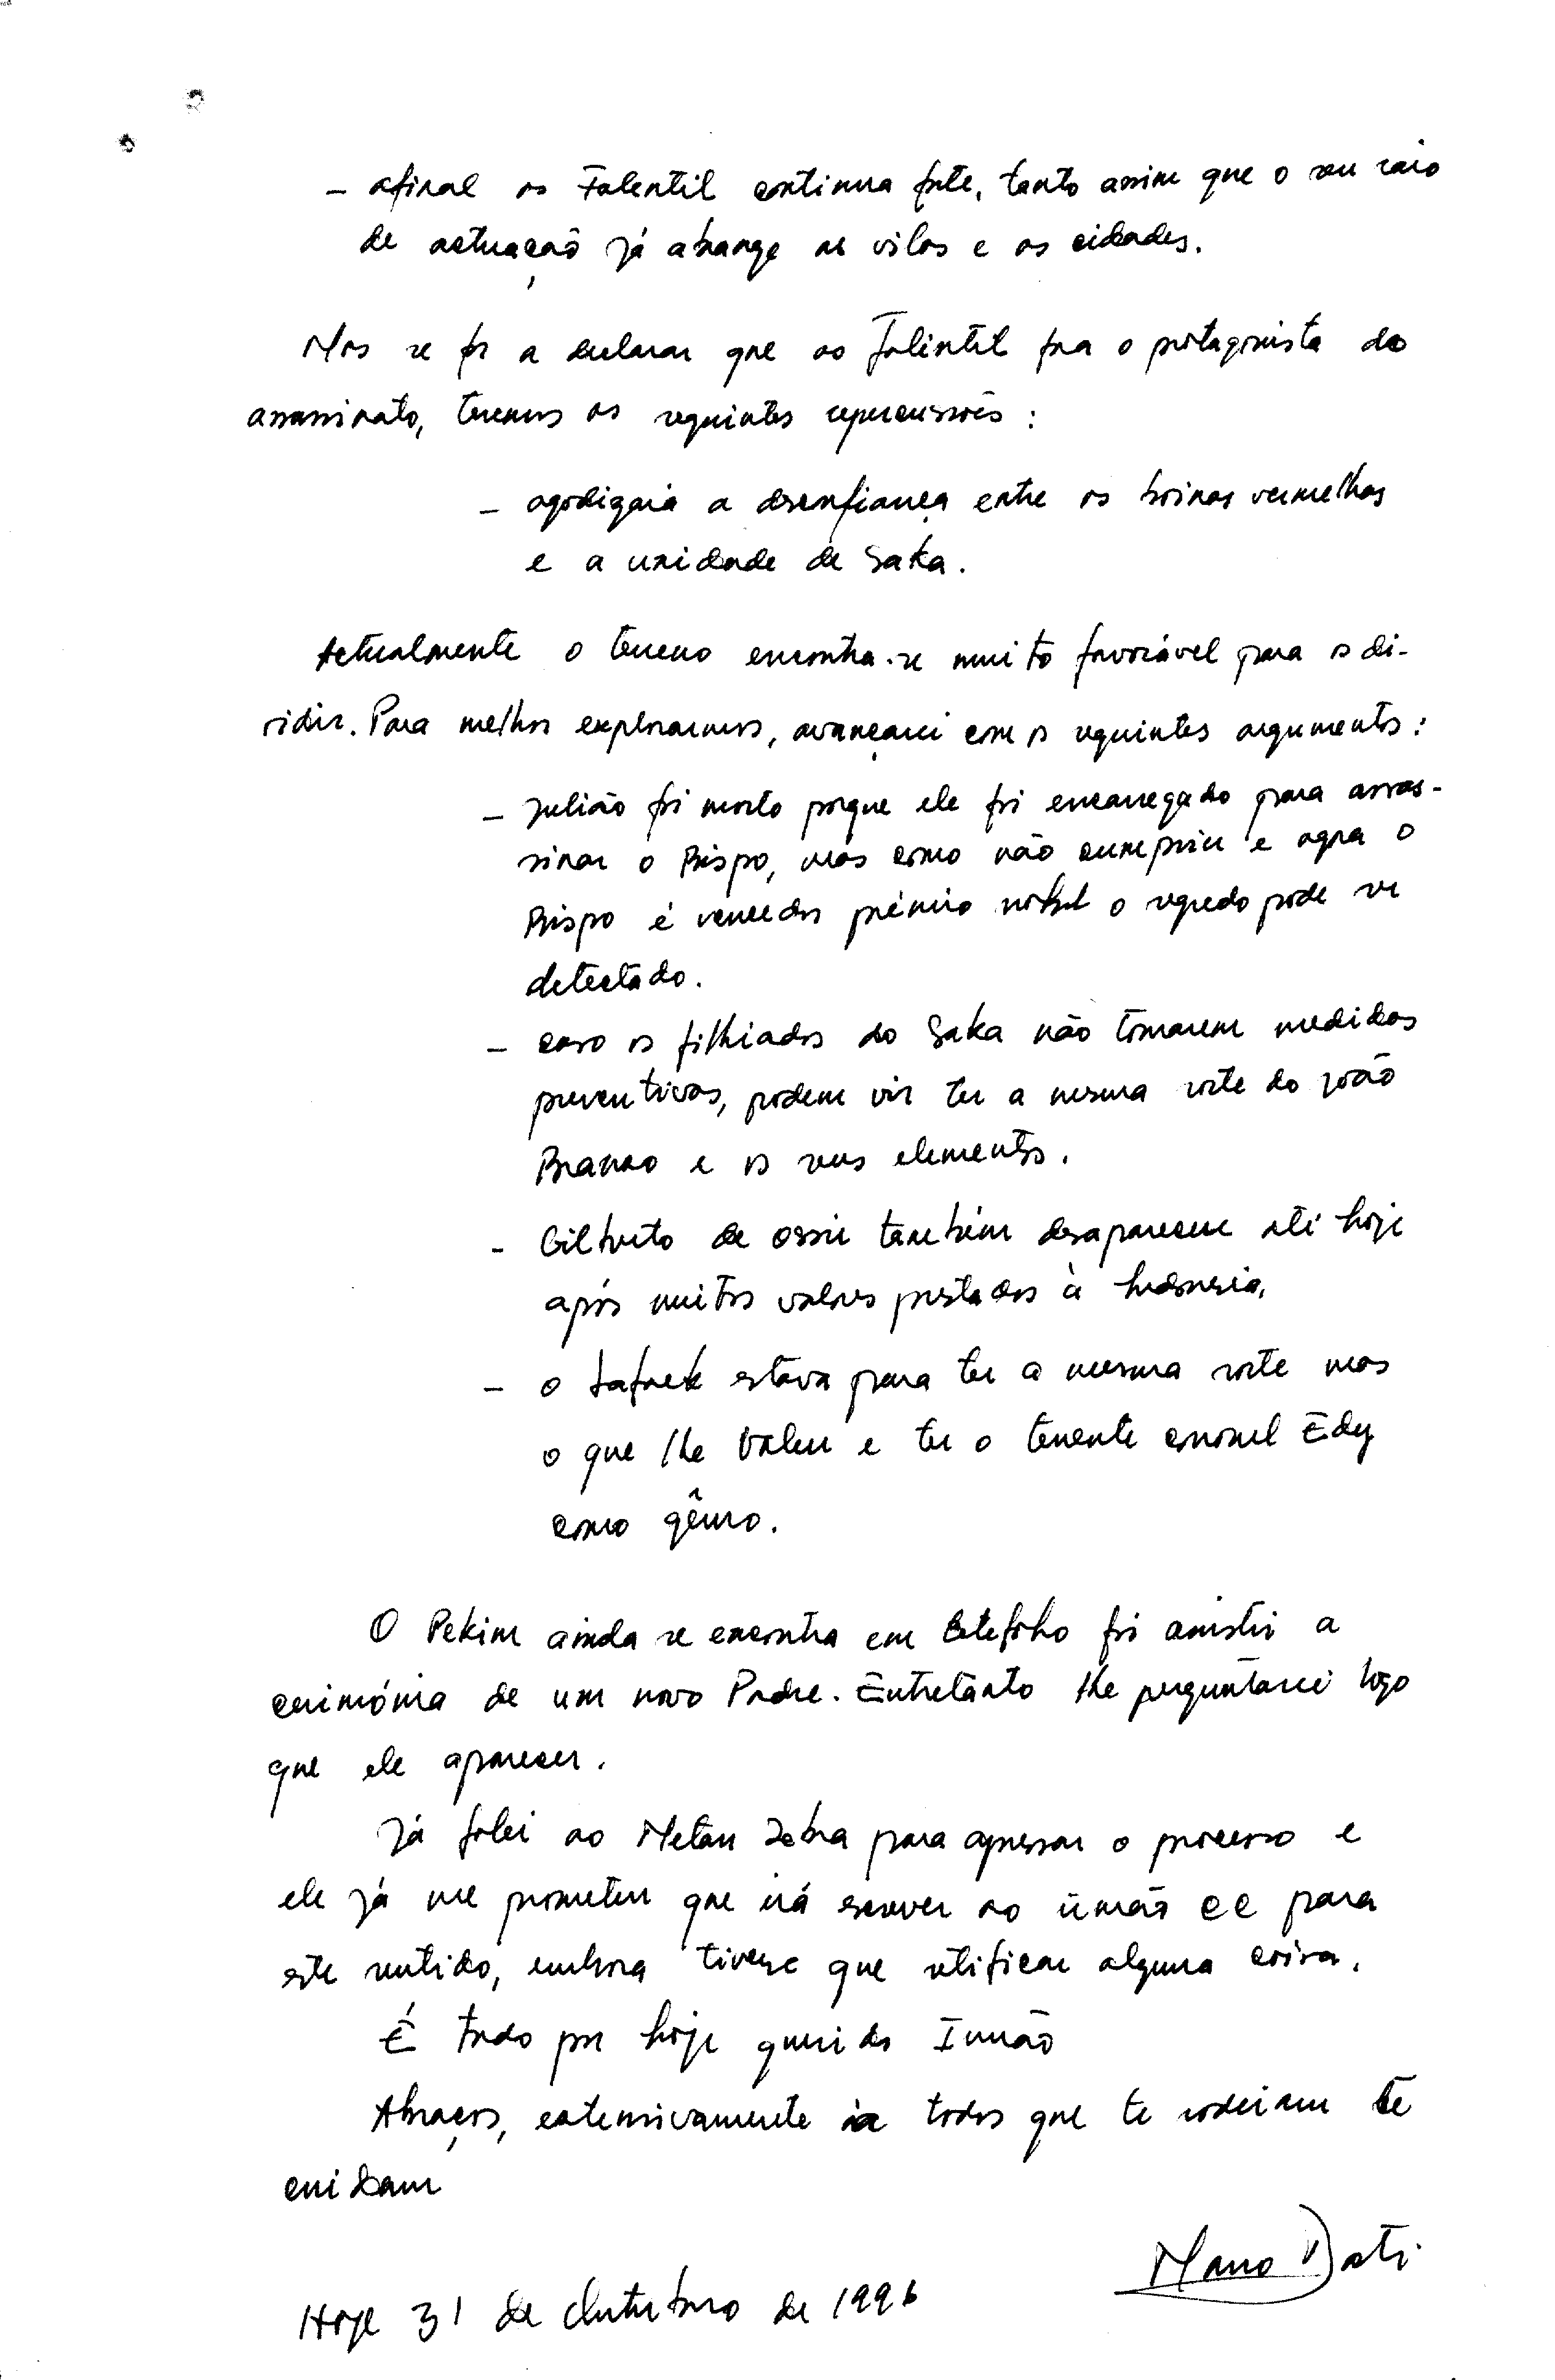 - afinal as Falentil continua forte, tanto assim que o seu raio
de actuação já abange as vilas e as cidades.
Mas se for a declarar que as Falintil fora o protagonista do
assassinato, teremos as seguintes repercussões :
- agodizaria a desconfiança entre os boinas vermelhas
e a unidade de Saka.
Actualmente o terreno encontra-se muito favorável para os di-
vidir. Para melhor explorarmos, avançarei com os seguintes argumentos :
- Julião foi morto porque ele foi encarregado para assas-
sinar o Bispo, mas como não cumpriu e agora o
Bispo é vencedor prémio nobel o segredo pode ser
detectado.
- caso os filhiados do Saka não tomarem medidas
preventivas, podem vir ter a mesma sorte do João
Branco e os seus elementos.
- Gilberto de Ossu também desapareceu até hoje
após muitos valores prestados à Indonesia.
- o Lafaek estava para ter a mesma sorte mas
o que lhe valeu e ter o tenente coronel Edy
como gênro.
O Pekim ainda se encontra em Letefoho foi assistir a
cerimónia de um novo Padre. Entretanto lhe perguntarei logo
que ele aparecer.
Já falei ao Metan Zebra para apressar o processo e
ele já me prometeu que irá escrever ao irmão CC para
este sentido, embora tivesse que retificar alguma coisa.
É tudo por hoje querido Irmão
Abraços, extensivamente a todos que te rodeiam te
cuidam
Mano Dati
Hoje 31 de Outubro de 1996